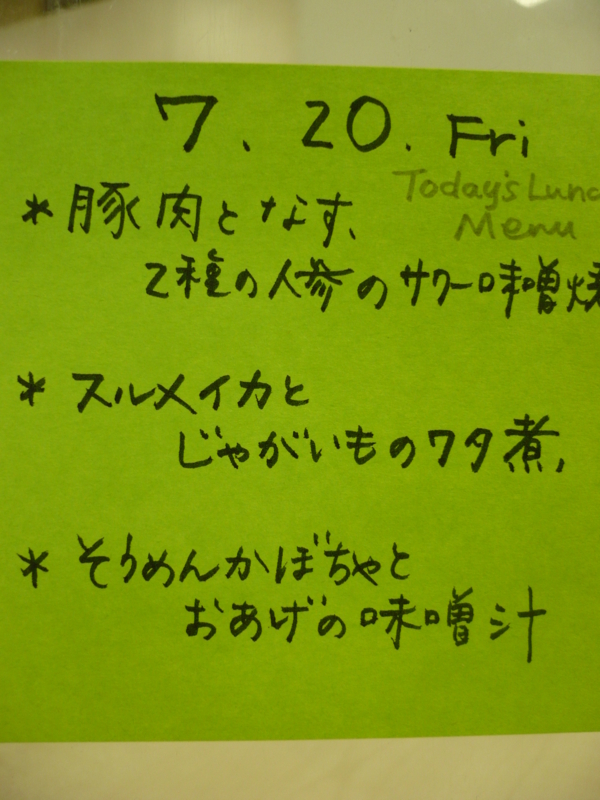 7. 20. Fri
Today's Lunc
Menu
* 豚肉となす、
2種の人参のサワー味噌焼
* スルメイカと
じゃがいものワタ煮,
* そうめんかぼちゃと
おあげの味噌汁